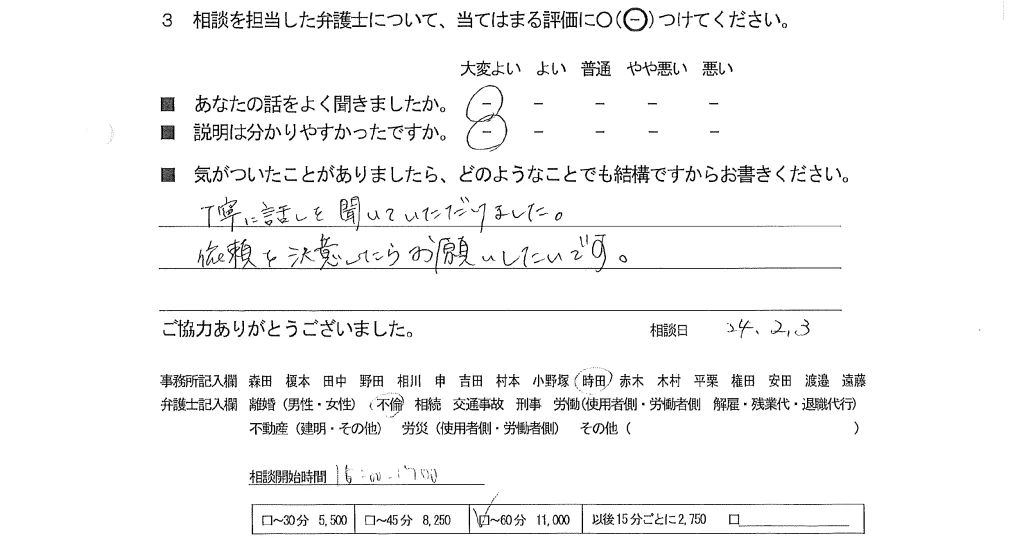 3 相談を担当した弁護士について、当てはまる評価に○(㊀)つけてください。
大変よい よい 普通 やや悪い 悪い
■ あなたの話をよく聞きましたか。 － － － － －
■ 説明は分かりやすかったですか。 － － － － －
■ 気がついたことがありましたら、どのようなことでも結構ですからお書きください。
丁寧に話しを聞いていただけました。
依頼を決意したらお願いしたいです。
ご協力ありがとうございました。 相談日 24、2、3
事務所記入欄 森田 榎本 田中 野田 相川 申 吉田 村本 小野塚 時田 赤木 木村 平栗 権田 安田 渡邉 遠藤
弁護士記入欄 離婚(男性・女性) 不倫 相続 交通事故 刑事 労働(使用者側・労働者側 解雇・残業代・退職代行)
不動産(建明・その他) 労災(使用者側・労働者側) その他( )
相談開始時間 16:00-1700
□～30分 5,500 □～45分 8,250 ☑～60分 11,000 以後15分ごとに2,750 □